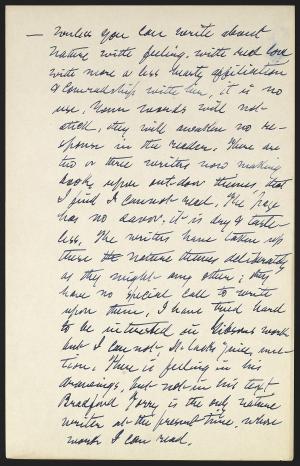 — Unless you can write about
nature with feeling, with real love
with more or less hearty affiliation
& comradeship with her, it is no
use. Your words will not
stick, they will awaken no re-
sponse in the reader. There are
two or three writers now making
books upon out-door themes that
I find I cannot read. The page
has no savor, it is dry & taste-
less. The writers have taken up
these nature themes deliberately
as they might any other; they
have no special call to write
upon them. I have tried hard
to be interested in Gibsons work
but I can not, it lacks juice, unc-
tion. There is feeling in his
drawings, but not in his text
Bradford Torrey is the only nature
writer at the present time, whose
works I can read.